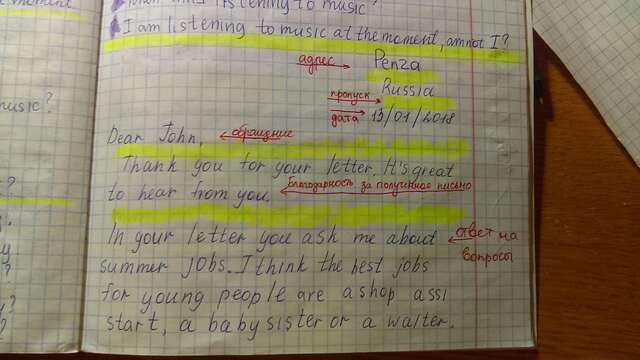 moment
When am I listening to music?
I am listening to music at the moment, am not I?
адрес Penza
Russia
пропуск
дата 13/01/2018
Dear John, обращение
Thank you for your letter. It's great
to hear from you. благодарность за полученное письмо
In your letter you ask me about ответ на
вопросы
summer jobs. I think the best jobs
for young people are a shop assi
start, a baby sister or a waiter.
music?